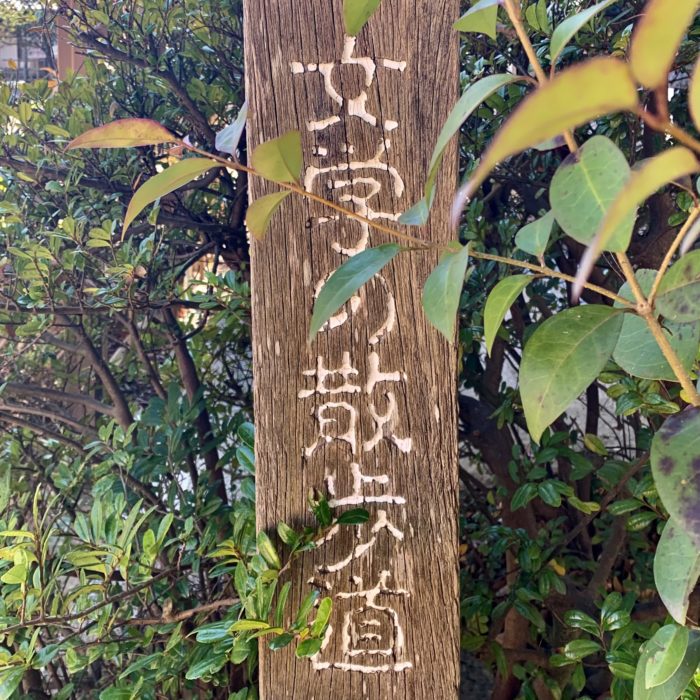 文学の散歩道